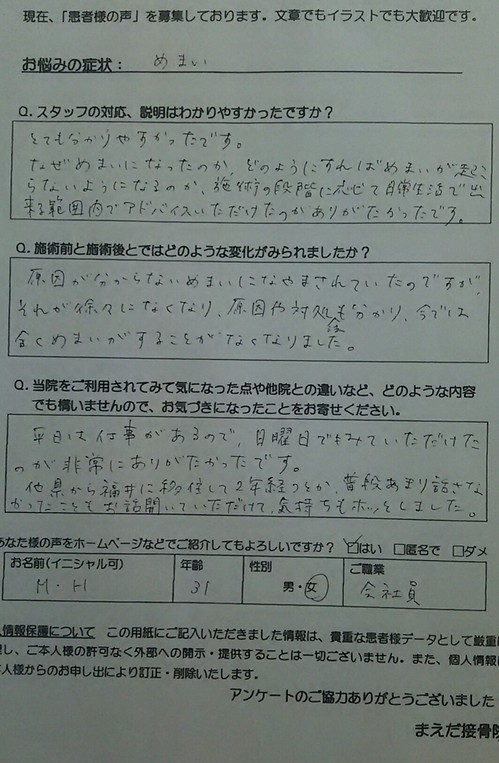 現在、「患者様の声」を募集しております。文章でもイラストでも大歓迎です。
お悩みの症状： めまい
Q. スタッフの対応、説明はわかりやすかったですか？
とても分かりやすかったです。
なぜめまいになったのか、どのようにすればめまいが起こ
らないようになるのか、施術の段階に応じて日常生活で出
来る範囲内でアドバイスいただけたのがありがたかったです。
Q. 施術前と施術後とではどのような変化がみられましたか？
原因が分からないめまいになやまされていたのですが
それが徐々になくなり、原因や対処法も分かり、今では
全くめまいがすることがなくなりました。
Q. 当院をご利用されてみて気になった点や他院との違いなど、どのような内容
でも構いませんので、お気づきになったことをお寄せください。
平日は仕事があるので、日曜日でもみていただけた
のが非常にありがたかったです。
他県から福井に移住して2年経つとか、普段あまり話さな
かったこともお話聞いていただけて、気持ちもホッとしました。
あなた様の声をホームページなどでご紹介してもよろしいですか？ ☑はい □匿名で □ダメ
お名前(イニシャル可) 年齢 性別 ご職業
M・H 31 男・女 会社員
人情報保護について この用紙にご記入いただきました情報は、貴重な患者様データとして厳重に
理し、ご本人様の許可なく外部への開示・提供することは一切ございません。また、個人情報は
本人様からのお申し出により訂正・削除いたします。
アンケートのご協力ありがとうございました
まえだ接骨院